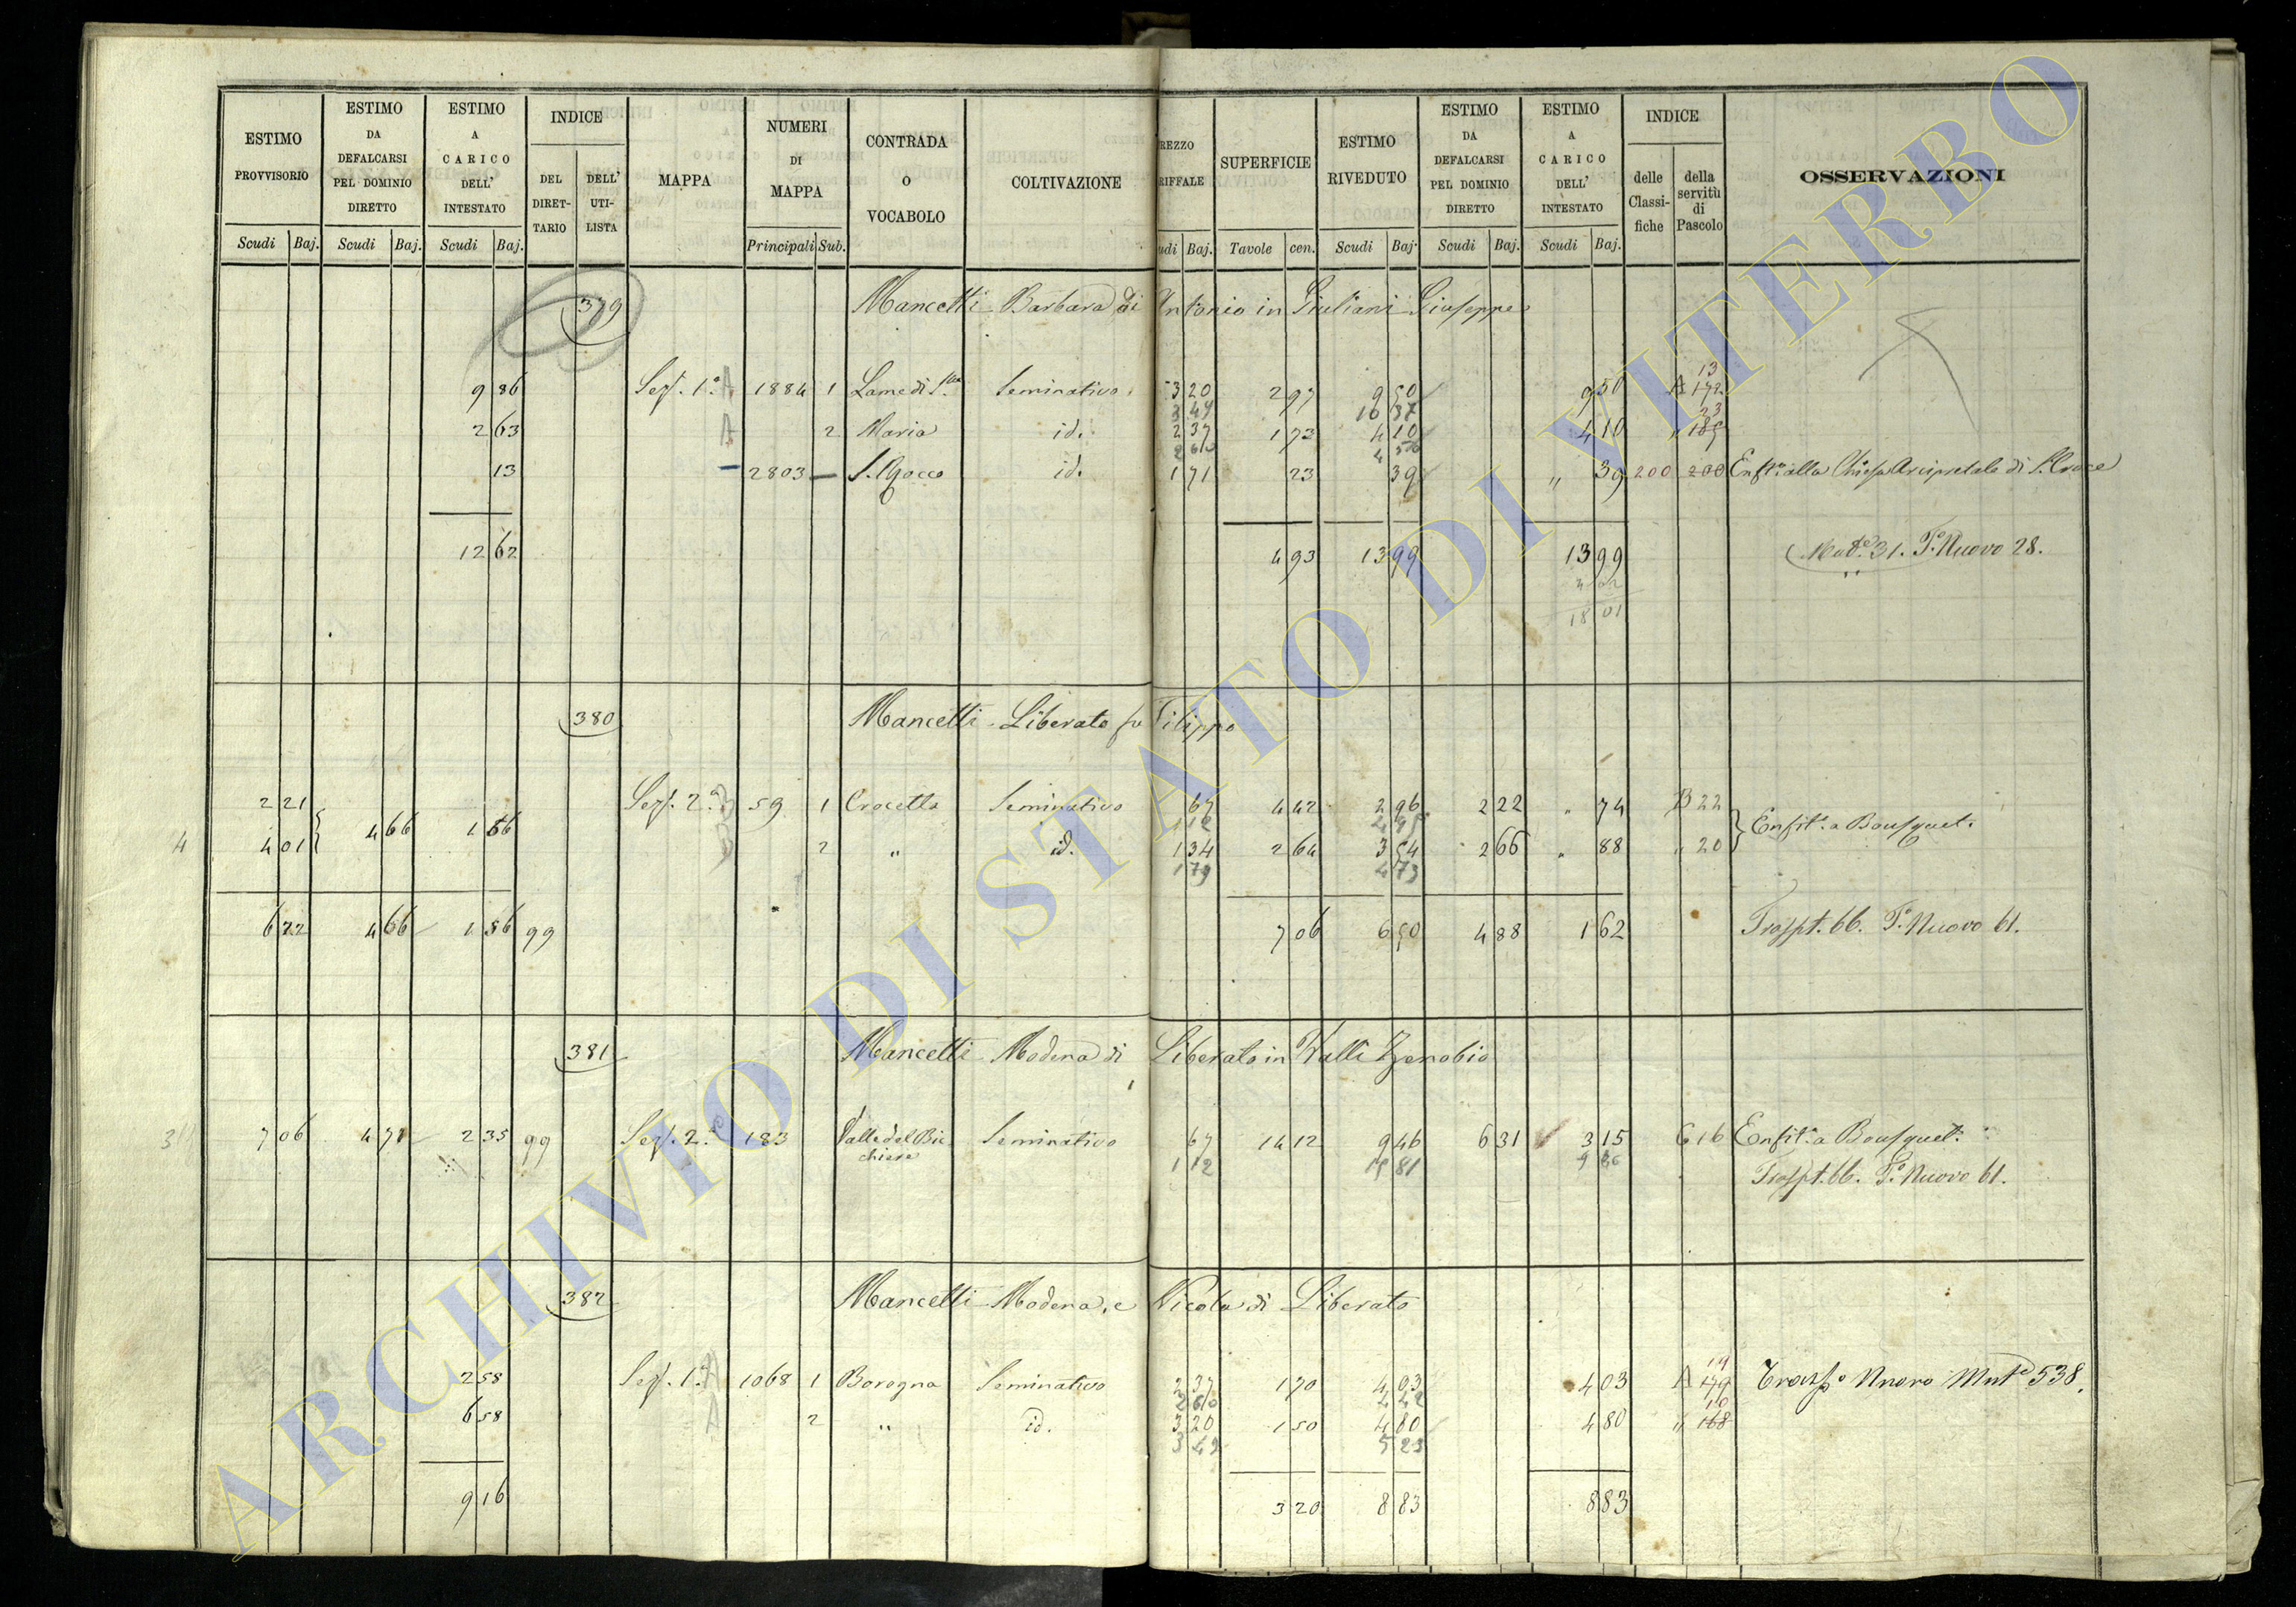 ESTIMO PROVVISORIO Scudi Baj. | ESTIMO DA DEFALCARSI PEL DOMINIO DIRETTO Scudi Baj. | ESTIMO A CARICO DELL' INTESTATO Scudi Baj. | INDICE DEL DIRETTARIO DELL' UTILISTA | MAPPA | NUMERI DI MAPPA Principali Sub. | CONTRADA O VOCABOLO | COLTIVAZIONE | REZZO RIFFALE udi Baj. | SUPERFICIE Tavole cen. | ESTIMO RIVEDUTO Scudi Baj. | ESTIMO DA DEFALCARSI PEL DOMINIO DIRETTO Scudi Baj. | ESTIMO A CARICO DELL' INTESTATO Scudi Baj. | INDICE delle Classifiche della servitù di Pascolo | OSSERVAZIONI
379 Mancetti Barbara di Antonio in Giuliani Giuseppe
9 86 Sez. 1.a A 1884 1 Lame di S.ta Seminativo 3 20 2 97 9 50 9 50 A 172 13
3 49 16 37
2 63 A 2 Maria id. 2 37 1 73 4 10 4 10 " 185 23
2 60 4 50
13 2803 — S. Rocco id. 1 71 23 39 " 39 200 200 Enfit.a alla Chiesa Arcipretale di S. Croce
12 62 4 93 13 99 13 99 Mut.e 31. T.o Nuovo 28.
4 02
18 01
380 Mancetti Liberato fu Filippo
2 21 Sez. 2.a B 59 1 Crocetta Seminativo 67 4 42 2 96 2 22 " 74 B 22
4 4 66 1 56 1 12 4 95 Enfit.a a Bousquet.
4 01 2 " id. 1 34 2 64 3 54 2 66 " 88 " 20
1 79 4 73
6 22 4 66 1 56 99 7 06 6 50 4 88 1 62 Traspt. 66. T.o Nuovo 61.
381 Mancetti Modena di Liberato in Valli Zenobio
3 7 06 4 71 2 35 99 Sez. 2.a 183 Valle del Bic Seminativo 67 14 12 9 46 6 31 3 15 C 16 Enfit.a a Bousquet.
chiere 1 12 15 81 9 46
Traspt. 66. T.o Nuovo 61.
382 Mancetti Modena, e Nicola di Liberato
2 58 Sez. 1.a A 1068 1 Boregna Seminativo 2 37 1 70 4 03 4 03 A 179 19 Trasp.o Nuovo Mut.e 538.
2 60 4 42
6 58 A 2 " id. 3 20 1 50 4 80 4 80 " 168 10
3 49 5 23
9 16 3 20 8 83 8 83
ARCHIVIO DI STATO DI VITERBO